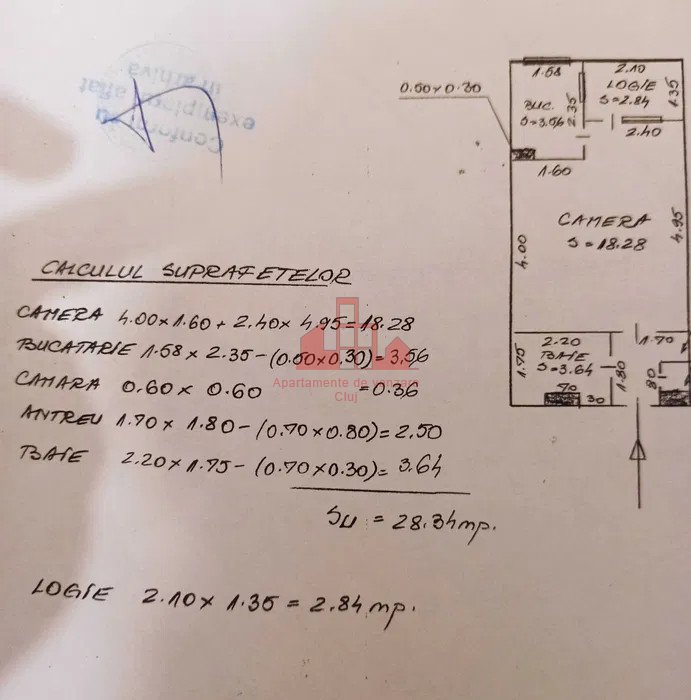 Conform cu
exemplarul aflat
în arhivă
0.50x0.30
1.58
BUC.
S=3.56
2.35
2.10
LOGIE
S=2.84
1.35
2.40
1.60
CAMERA
S=18.28
4.00
4.95
2.20
BAIE
S=3.64
1.75
1.80
1.70
80
70
30
CALCULUL SUPRAFETELOR
CAMERA 4.00x1.60+2.40x4.95=18.28
BUCATARIE 1.58x2.35-(0.50x0.30)=3.56
CAMARA 0.60x0.60 =0.36
ANTREU 1.70x1.80-(0.70x0.80)=2.50
BAIE 2.20x1.75-(0.70x0.30)=3.64
SU = 28.34mp.
LOGIE 2.10x1.35=2.84mp.
Apartamente de vanzare
Cluj